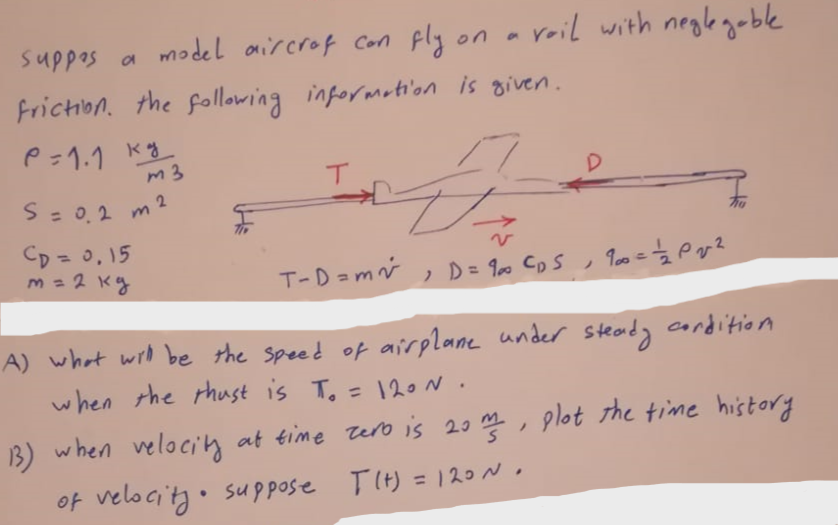 suppos a model aircraf can fly on a rail with neglegable
friction. the following information is given.
ρ = 1.1 kg/m3
S = 0.2 m2
CD = 0.15
m = 2 kg
T
D
v
T-D = mv̇ , D = q∞ CD S , q∞ = 1/2 ρ v2
A) what will be the speed of airplane under steady condition
when the thust is T₀ = 120 N .
B) when velocity at time zero is 20 m/s , plot the time history
of velocity. suppose T(t) = 120 N .